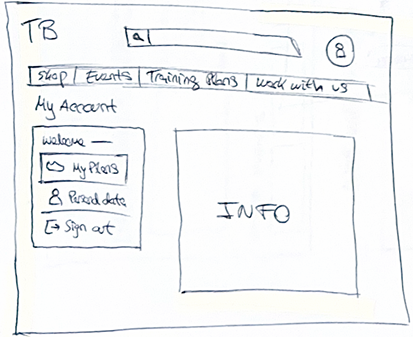 TB
Shop | Events | Training Plans | Work with us
My Account
Welcome —
My Plans
Personal data
Sign out
INFO